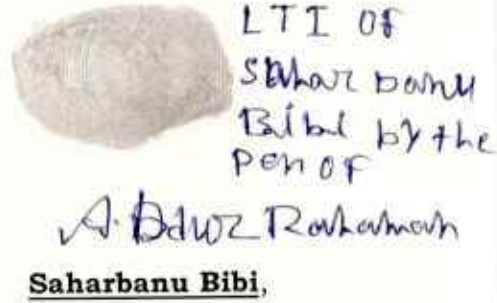 LTI of
Sahar banu
Bibi by the
pen of
A. Rahaman
Saharbanu Bibi,